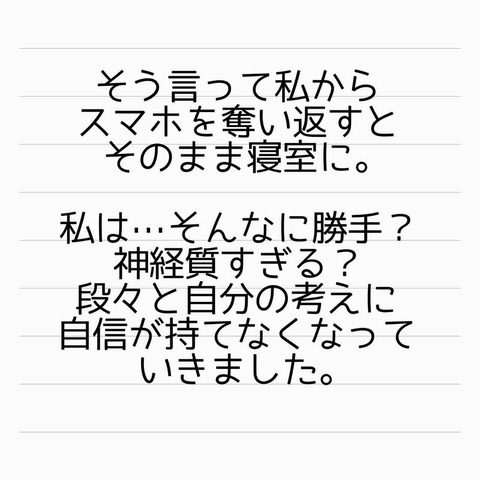 そう言って私から
スマホを奪い返すと
そのまま寝室に。
私は…そんなに勝手？
神経質すぎる？
段々と自分の考えに
自信が持てなくなって
いきました。